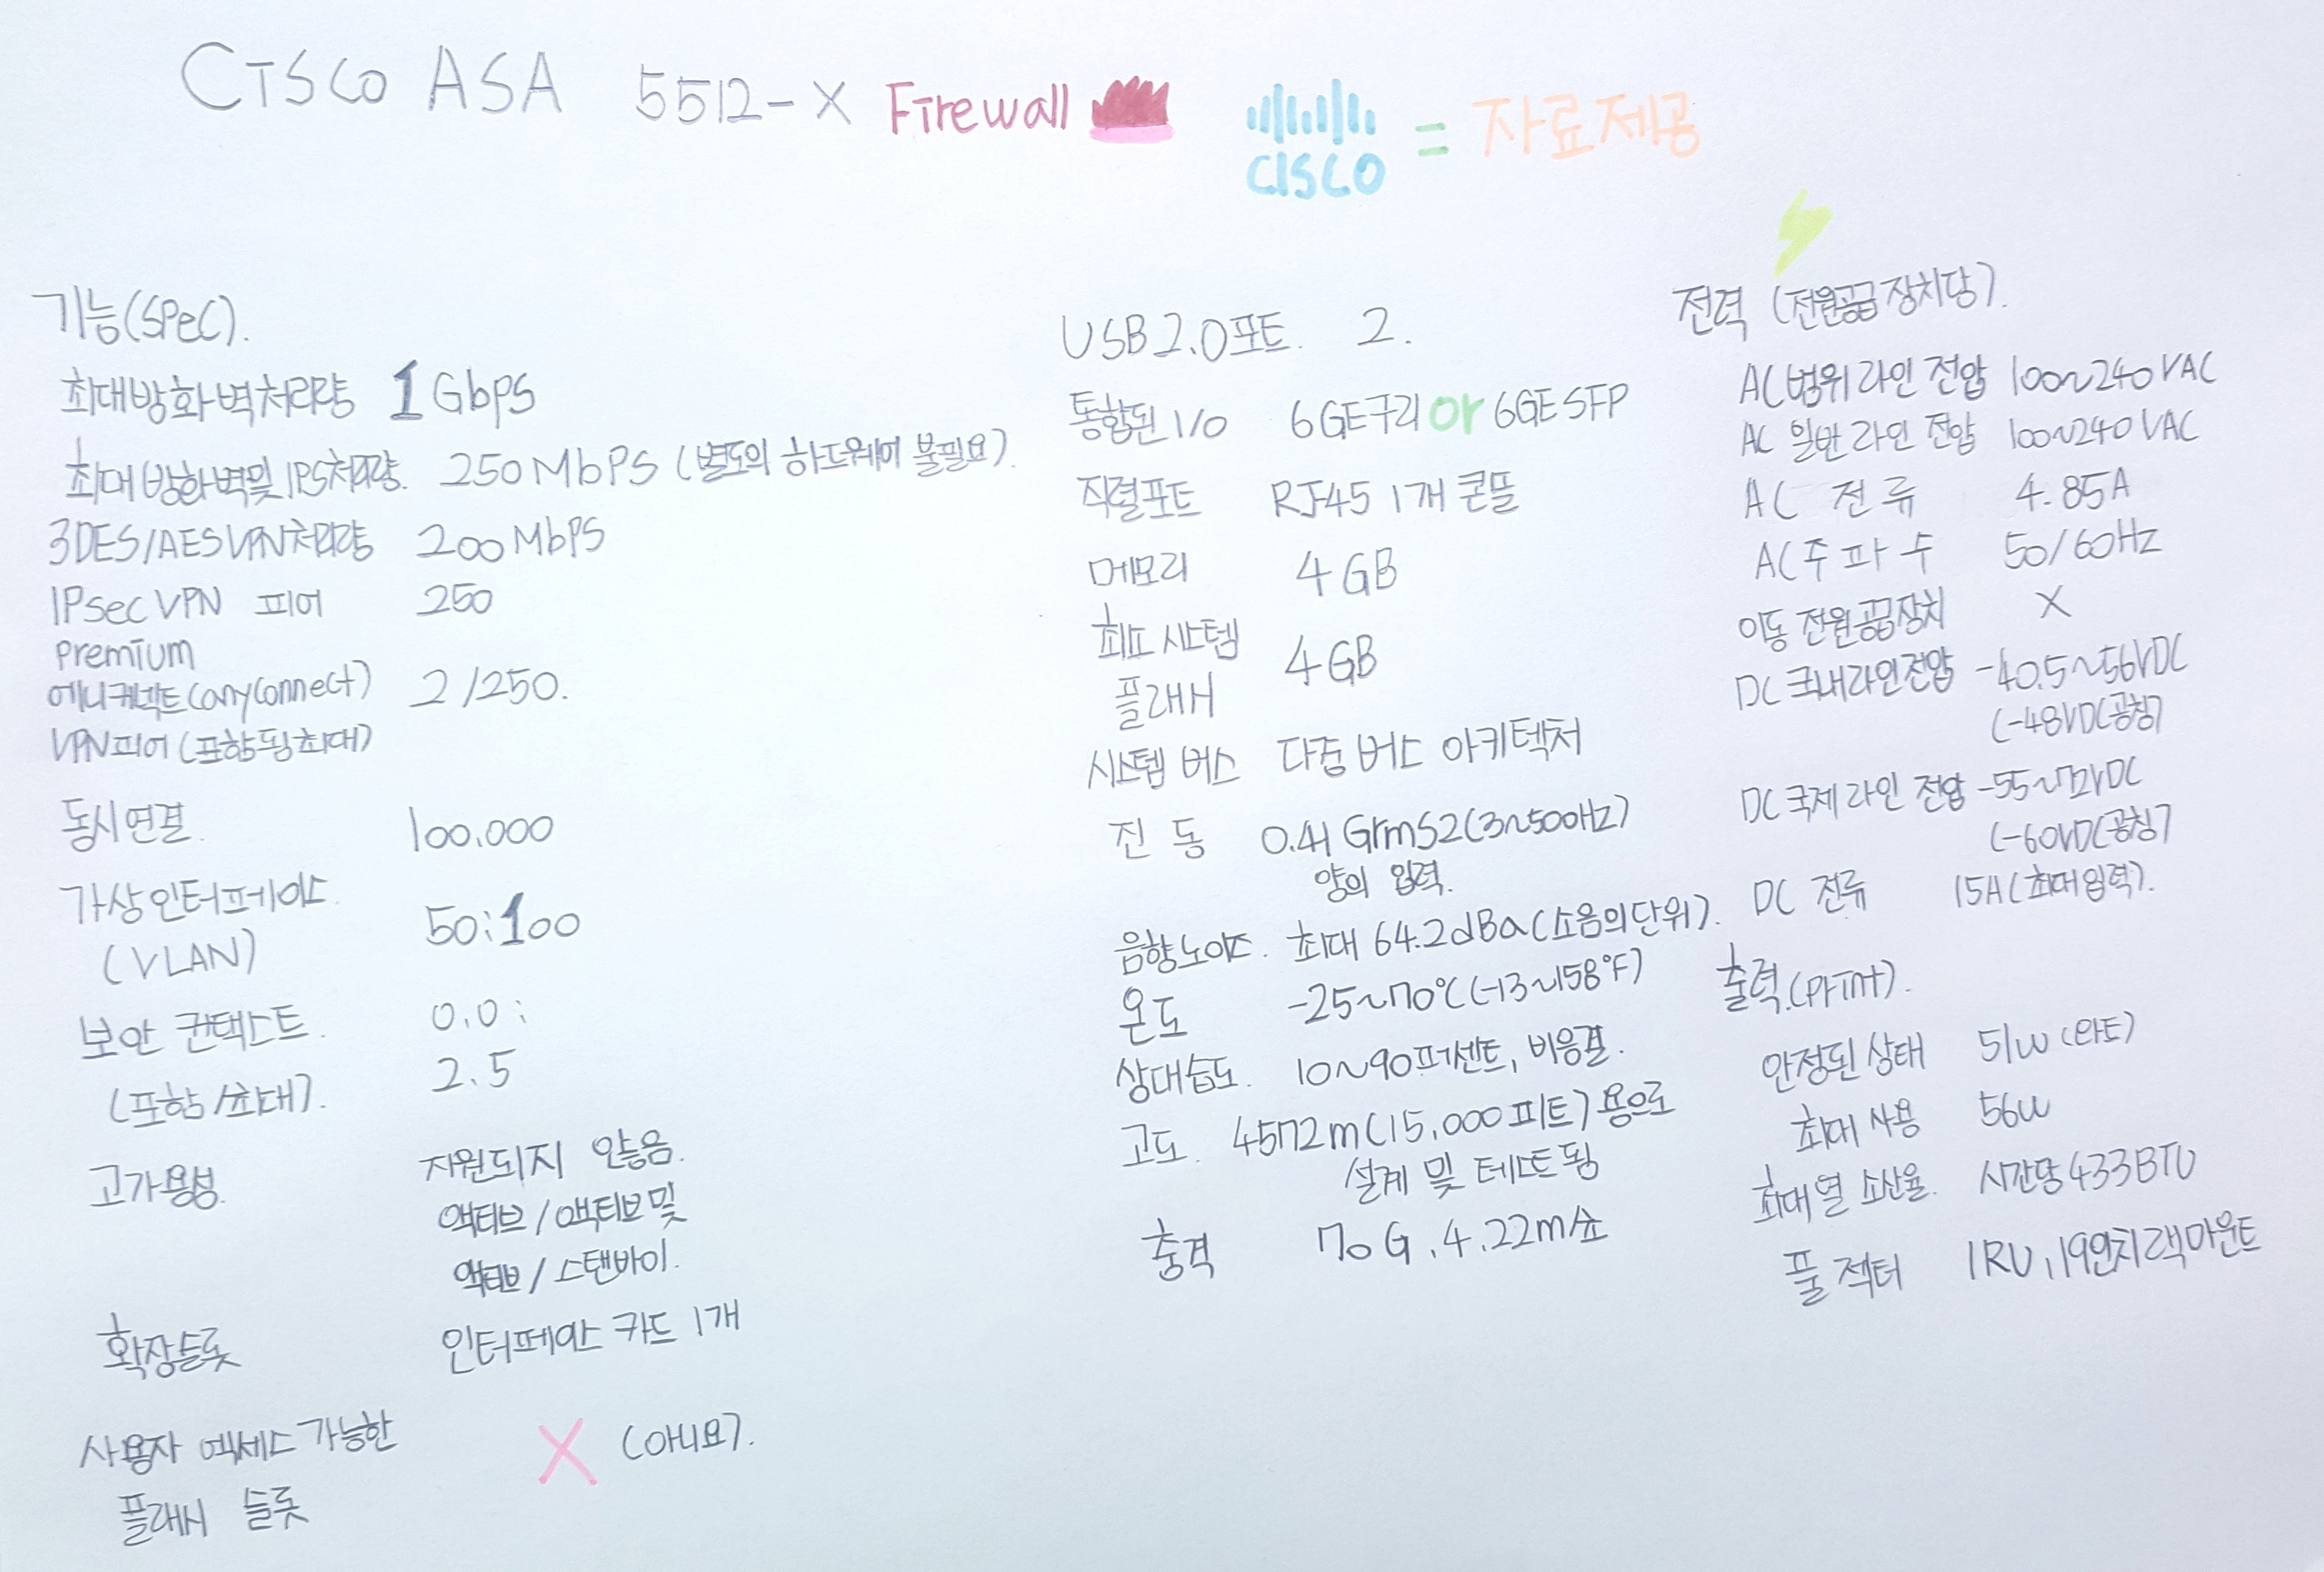 CISCO ASA 5512-X Firewall
CISCO = 자료제공
기능(SPeC).
최대방화벽처리량 1Gbps
최대방화벽및 IPS처리량. 250MbPS (별도의 하드웨어 불필요).
3DES/AESVPN처리량 200MbPS
IPsecVPN 피어 250
Premium
에니커넥트(anyConnect) 2/250.
VPN피어(포함됨최대)
동시연결. 100.000
가상인터페이스. 50:100
(VLAN)
보안 컨택스트. 0.0:
(포함/최대). 2.5
고가용성. 지원되지 않음.
액티브/액티브및
액티브/스탠바이.
확장슬롯 인터페이스 카드 1개
사용자 엑세스 가능한 X (아니요).
플래시 슬롯
USB2.0포트. 2.
통합된 I/O 6GE구리or6GESFP
직렬포트 RJ45 1개 콘솔
메모리 4GB
최소 시스템 4GB
플래시
시스템 버스 다중버스 아키텍처
진동 0.41 GrmS2(3~500Hz)
양의 입력.
음향노이즈. 최대 64.2dBa(소음의단위).
온도 -25~70℃(-13~158°F)
상대습도. 10~90퍼센트, 비응결.
고도. 4572m(15,000피트)용으로
설계 및 테스트됨
충격 70G.4.22m/초
전력 (전원공급장치당).
AC범위라인 전압 100~240VAC
AC 일반라인 전압 100~240VAC
AC 전류 4.85A
AC주파수 50/60Hz
이동 전원공급장치 X
DC국내라인전압 -40.5~56VDC
(-48VDC공칭)
DC국제라인 전압 -55~72VDC
(-60VDC공칭)
DC 전류 15A(최대입력).
출력.(PrInt).
안정된상태 51w(와트)
최대사용 56w
최대열소산율. 시간당433BTU
폼 젝터 1RU,19인치랙마운트